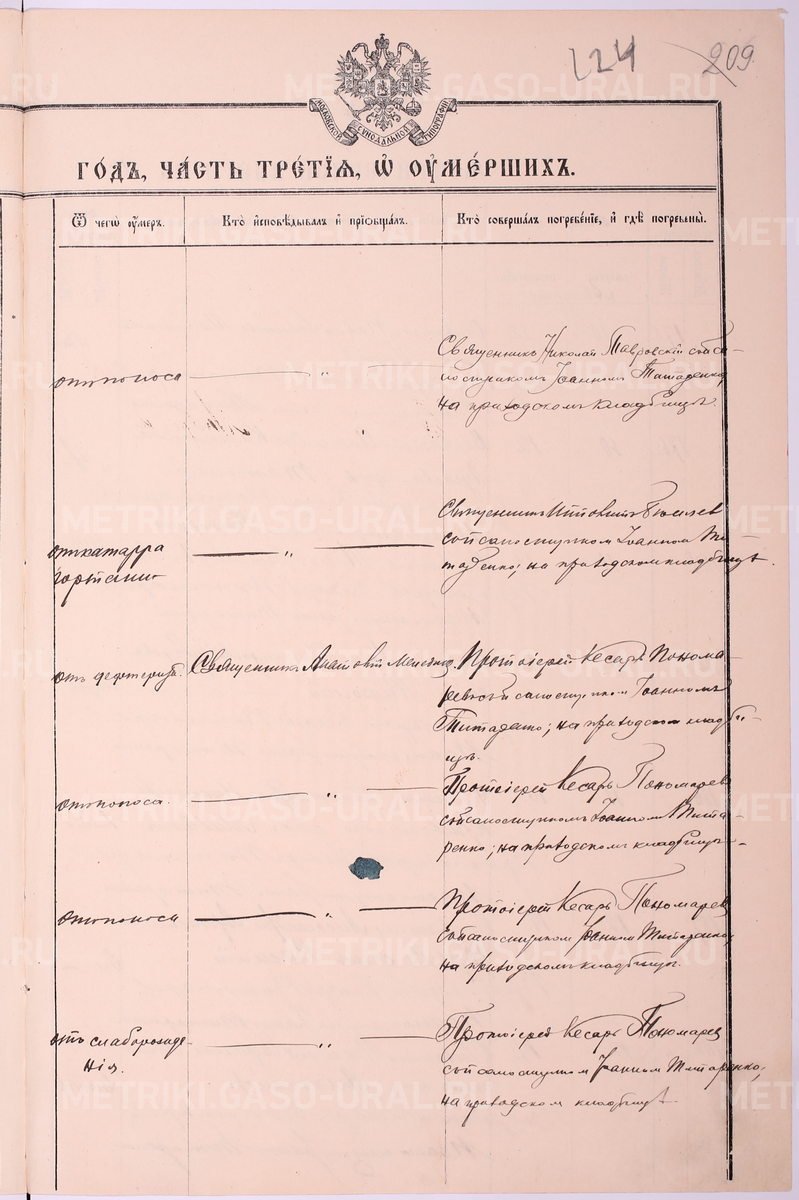 224 209
МОСКОВСКОЙ СѴНОДАЛЬНОЙ ТИПОГРАФІИ
ГО́ДЪ, ЧА́СТЬ ТРЕ́ТІѦ, Ѡ҆ ОУ҆МЕ́РШИХЪ.
Ѿ чегѡ̀ оу҆́меръ.
Кто̀ и҆сповѣ́дывалъ и҆ прїѡбща́лъ.
Кто̀ соверша́лъ погребе́нїе, и҆ гдѣ̀ погребены̀.
отъ поноса
Священникъ Николай Тавровскій съ пса-
ломщикомъ Іоанномъ Титаренко,
на приходскомъ кладбищѣ.
отъ катарра
гортани
Священникъ
съ псаломщиком Іоанном Ти-
таренко; на приходском кладбищѣ.
отъ дефтерита.
Священникъ
Протоіерей Кесарь Понома-
ревъ съ псаломщиком Іоанномъ
Титаренко; на приходском кладби-
щѣ.
отъ поноса.
Протоіерей Кесарь Пономарев
съ псаломщикомъ Іоанном Тита-
ренко; на приходскомъ кладбищѣ.
отъ поноса
Протоіерей Кесарь Пономарев
съ псаломщиком Іоанном Титаренко;
на приходскомъ кладбищѣ.
отъ слаборожде-
нія.
Протоіерей Кесарь Пономарев
съ псаломщиком Іоанном Титаренко,
на приходском кладбищѣ
METRIKI.GASO-URAL.RU